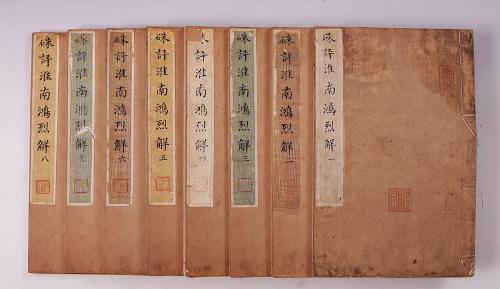 硃評淮南鴻烈解一
硃評淮南鴻烈解二
硃評淮南鴻烈解三
硃評淮南鴻烈解四
硃評淮南鴻烈解五
硃評淮南鴻烈解六
硃評淮南鴻烈解七
硃評淮南鴻烈解八